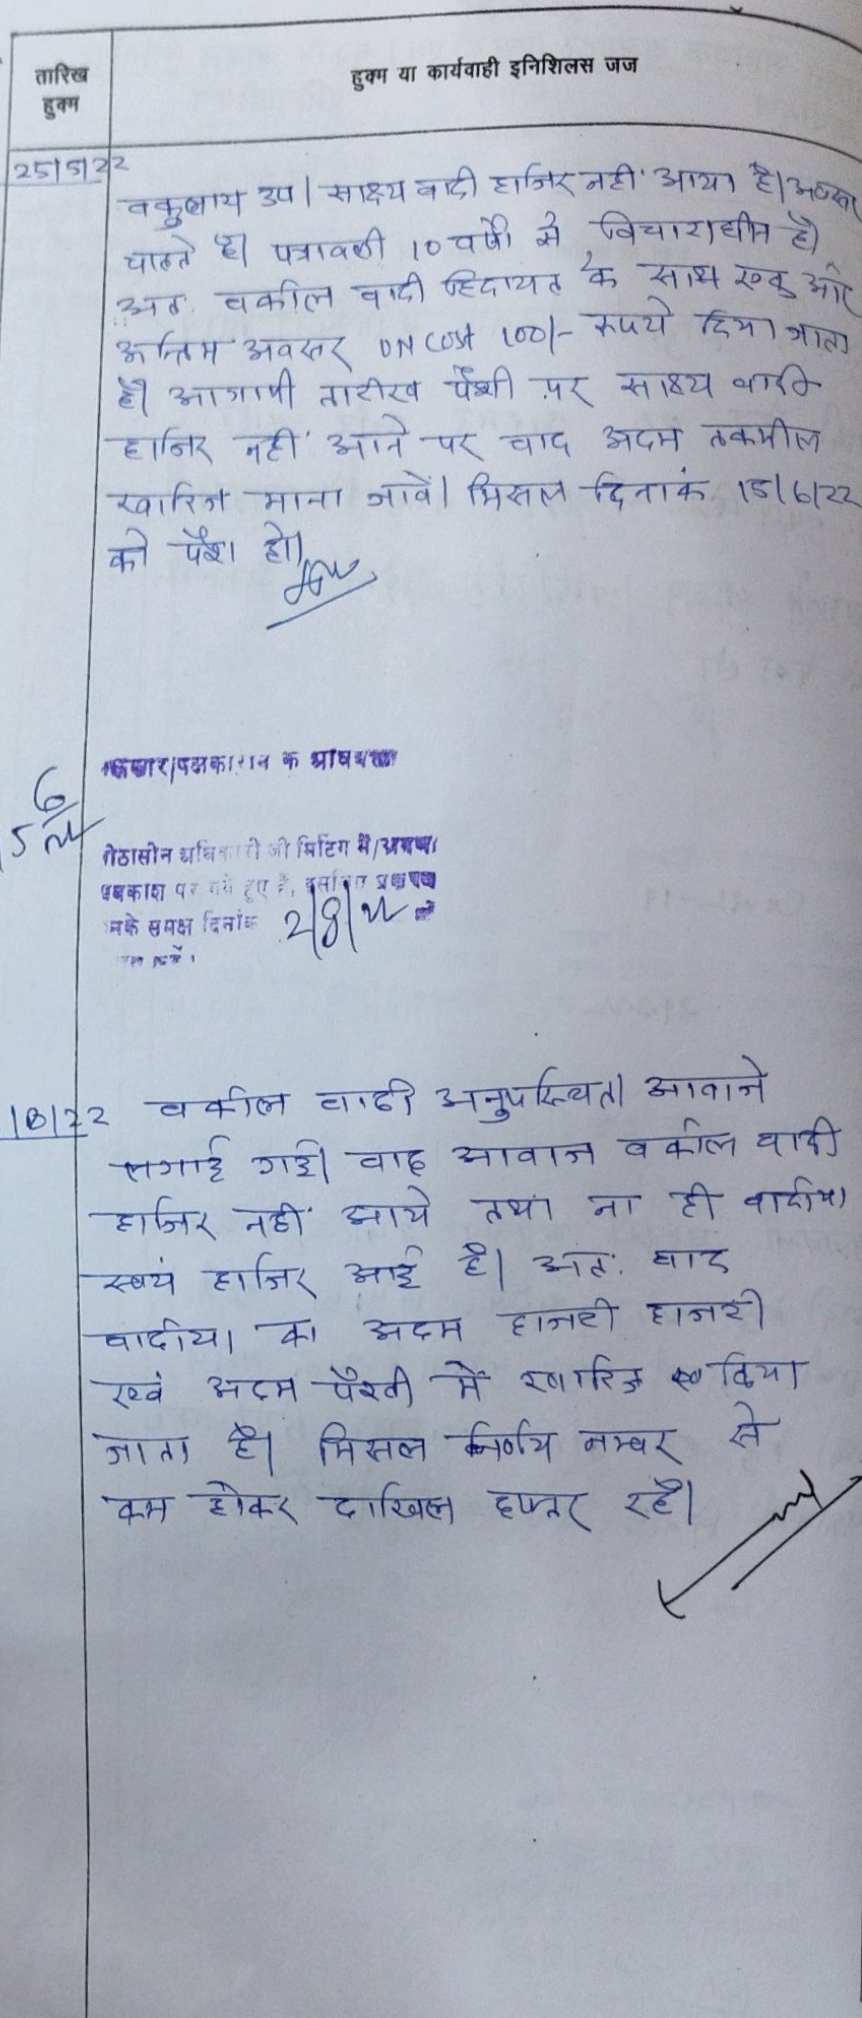 तारिख
हुक्म
हुक्म या कार्यवाही इनिशिलस जज
25/5/22
वकुलाय उप। साक्ष्य वादी हाजिर नही आया है। अवसर
चाहते है। पत्रावली 10 वर्षो से विचाराधीन है।
अतः वकील वादी हिदायत के साथ एक और
अन्तिम अवसर ON COST 100/- रूपये दिया जाता
है। आगामी तारीख पैशी पर साक्ष्य वादी
हाजिर नही आने पर वाद अदम तकमील
खारिज माना जावें। मिसल दिनाकं 15/6/22
को पैश हो।
के
मिटिंग में/अथवा
पर गये हुए है,
समक्ष दिनांक 2/8/22 को
वकील वादी अनुपस्थित। आवाजे
लगाई गई। बाद आवाज वकील वादी
हाजिर नही आये तथा ना ही वादीया
स्वयं हाजिर आई है। अतः वाद
वादीया का अदम हाजरी हाजरी
एवं अदम पैरवी में खारिज किया
जाता है। मिसल निर्णय नम्बर से
कम होकर दाखिल दफ्तर रहै।